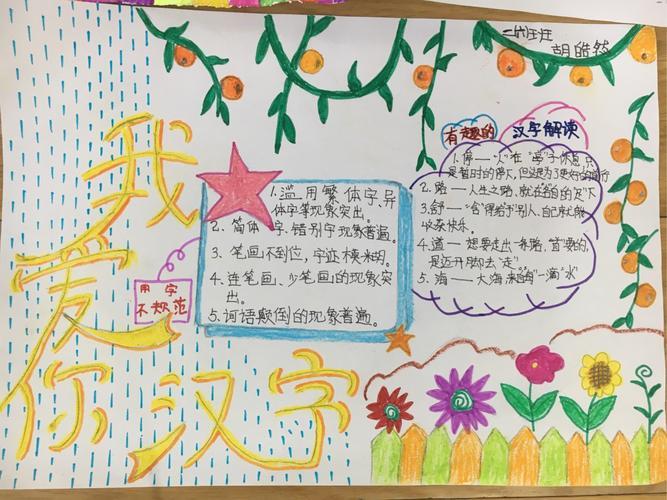 二六班
胡皓然
我爱你汉字
用字
不规范
1.滥用繁体字、异
体字等现象突出。
2、简体字、错别字现象普遍。
3、笔画不到位,字迹模糊。
4、连笔画、少笔画的现象突
出。
5、词语颠倒的现象普遍。
有趣的 汉字解读
1.停——“人”在“亭”子休息,只
是暂时的停下,但这是为了更好的前行
2.路——人生之路,就在各自的足下
3.舒——“舍”得“给予”别人,自己就能
收获快乐。
4.道——想要走出一条路,“首”要的,
是迈开脚去“走”
5、海——大海,来自每一滴“水”